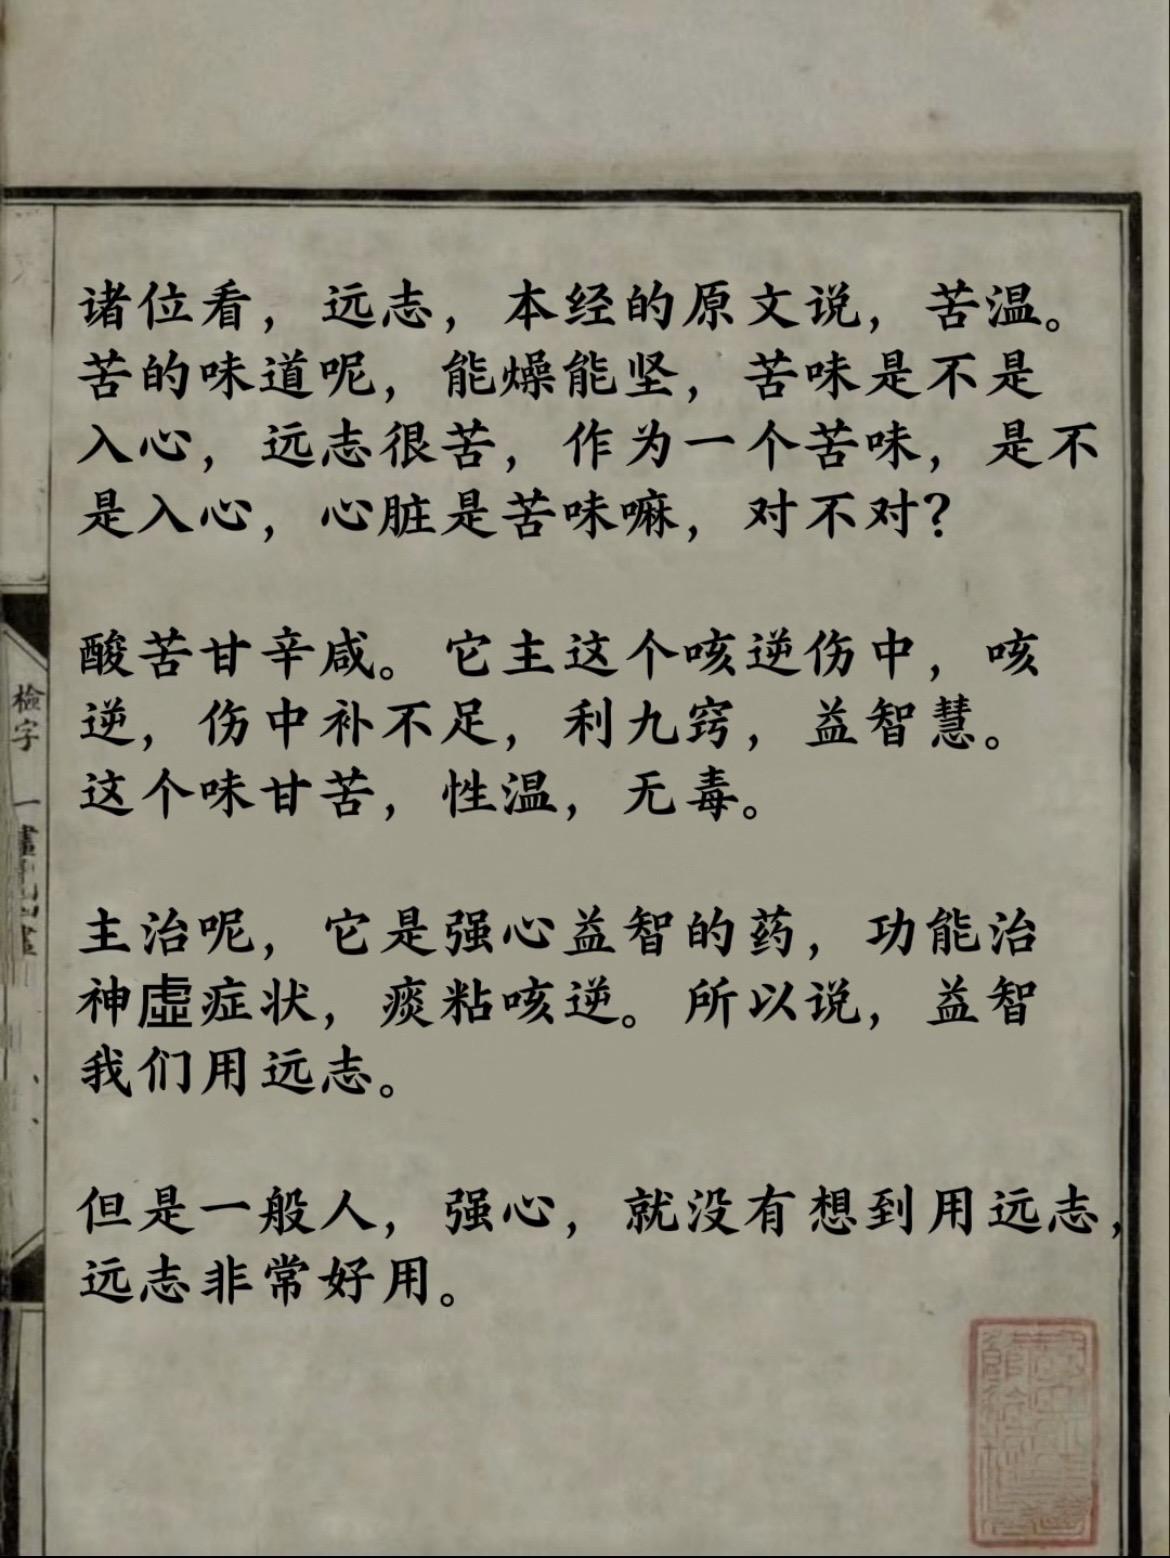 诸位看，远志，本经的原文说，苦温。
苦的味道呢，能燥能坚，苦味是不是
入心，远志很苦，作为一个苦味，是不
是入心，心脏是苦味嘛，对不对？
酸苦甘辛咸。它主这个咳逆伤中，咳
逆，伤中补不足，利九窍，益智慧。
这个味甘苦，性温，无毒。
主治呢，它是强心益智的药，功能治
神虛症状，痰粘咳逆。所以说，益智
我们用远志。
但是一般人，强心，就没有想到用远志，
远志非常好用。
檢字